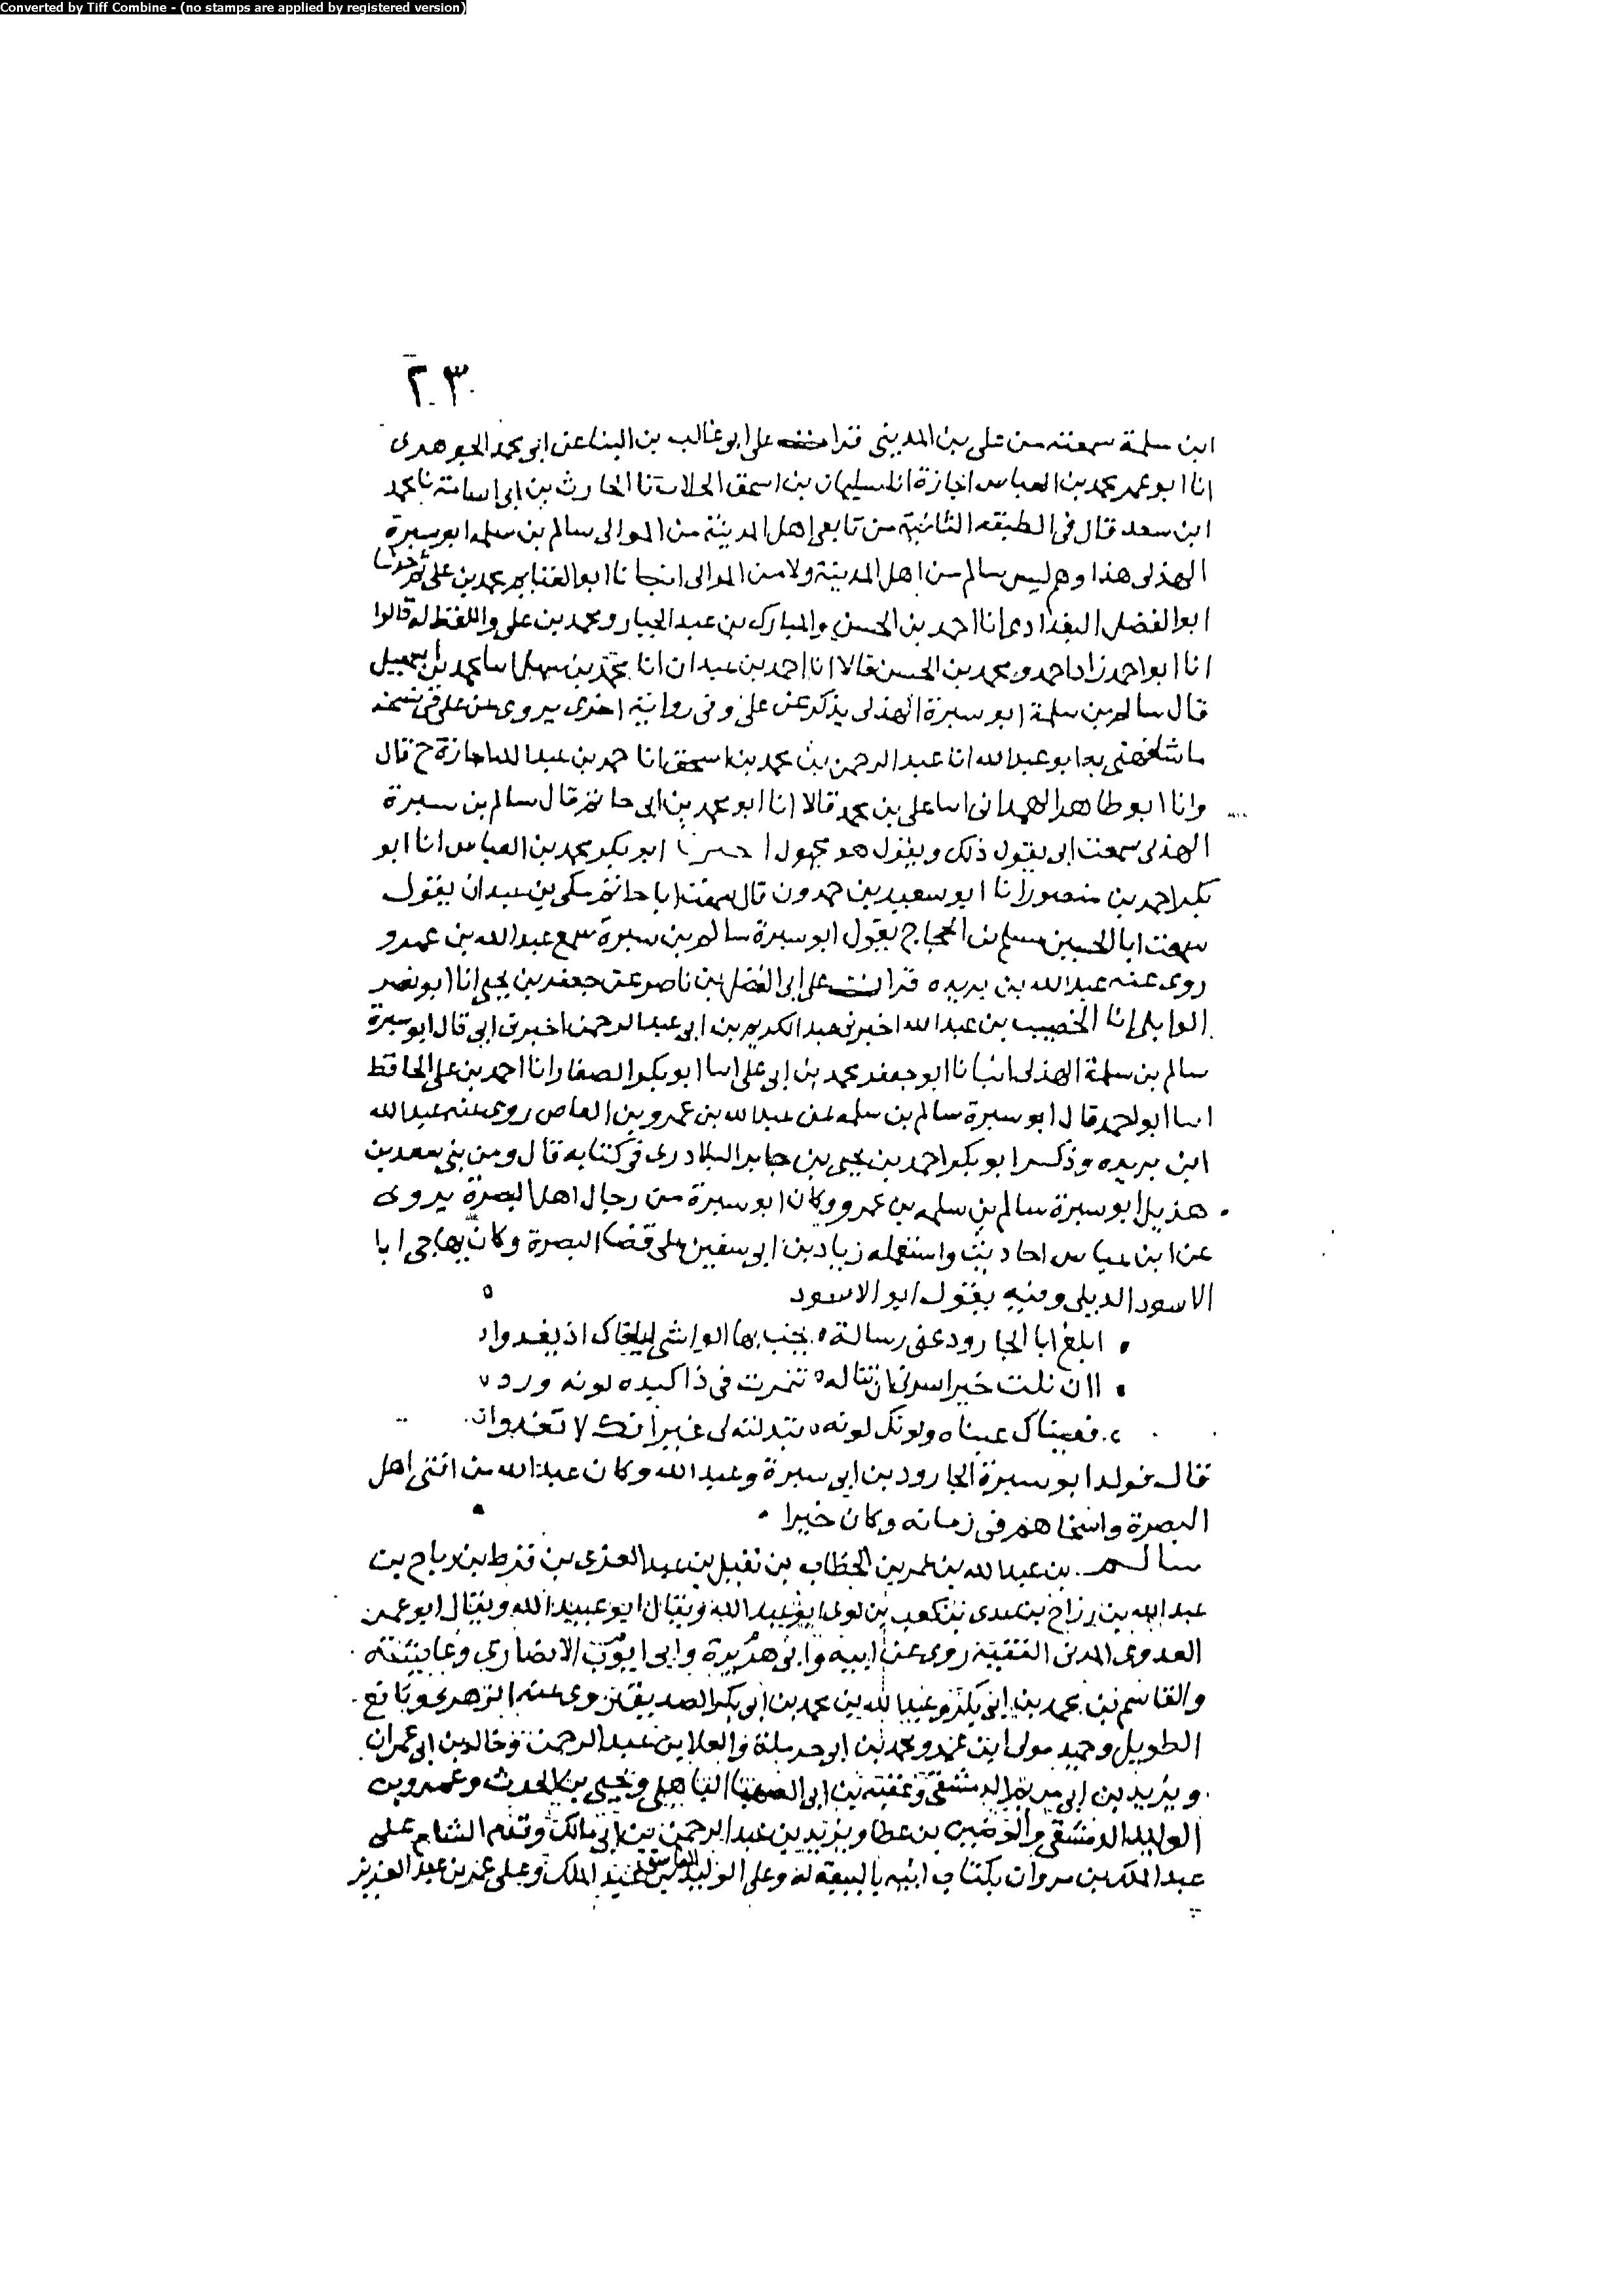 Converted by Tiff Combine - (no stamps are applied by registered version)
٢٠٣
ابن سلمة سمعته من علي بن المديني قرات على ابو غالب بن البنا عن ابي محمد الجوهري
انا ابو عمر محمد بن العباس اجازة انا سليمان بن اسحق الجلاب نا الحارث بن ابي اسامة نا محمد
ابن سعد قال في الطبقه الثانية من تابعي اهل المدينة من الموالي سالم بن سلمه ابو سبرة
الهذلي هذا وهم ليس سالم من اهل المدينة ولا من الموالي انبانا ابو الغنايم محمد بن علي ثم حدثنا
ابو الفضل البغدادي انا احمد بن الحسن والمبارك بن عبد الجبار ومحمد بن علي واللفظ له قالوا
انا ابو احمد زاد احمد ومحمد بن الحسن قالا انا احمد بن عبدان انا محمد بن سهل انا محمد بن اسمعيل
قال سالم بن سلمة ابو سبرة الهذلي يذكر عن علي وفي رواية اخرى يروي عن علي في نسخه
ما شافهني به ابو عبد الله انا عبد الرحمن بن محمد بن اسحق انا حمد بن عبد الله اجازة ح قال
وانا ابو طاهر الهمداني انا علي بن محمد قالا انا ابو محمد بن ابي حاتم قال سالم بن سبرة
الهذلي سمعت ابي يقول ذلك ويقول هو مجهول اخبرنا ابو بكر محمد بن العباس انا ابو
بكر احمد بن منصور انا ابو سعيد بن حمدون قال سمعت ابا حاتم مكي بن عبدان يقول
سمعت ابا الحسين مسلم بن الحجاج يقول ابو سبرة سالم بن سبرة سمع عبد الله بن عمرو
روى عنه عبد الله بن بريده قرات على ابي الفضل بن ناصر عن جعفر بن يحيى انا ابو نصر
الوايلي انا الخصيب بن عبد الله اخبرني عبد الكريم بن ابي عبد الرحمن اخبرني ابي قال ابو سبرة
سالم بن سلمة الهذلي انبانا ابو جعفر محمد بن ابي علي انا ابو بكر الصفار انا احمد بن علي الحافظ
انا ابو احمد قال ابو سبرة سالم بن سلمه عن عبد الله بن عمرو بن العاص روى عنه عبد الله
ابن بريده وذكر ابو بكر احمد بن يحيى بن جابر البلادري في كتابه قال ومن بني سعد بن
هذيل ابو سبرة سالم بن سلمه بن عمرو وكان ابو سبرة من رجال اهل البصرة يروي
عن ابن عباس احاديث واستعمله زياد بن ابي سفين على قضا البصرة وكان يهاجي ابا
الاسود الديلي وفيه يقول ابو الاسود
ابلغ ابا الجارود عني رسالة يخب بها الواشي ليلقاك اذ يغدوا
اان نلت خيرا سرني ان تناله تنمرت في ذا كبده لونه ورد
فعيناك عيناه ولونك لونه تبدلته لي غير انك لا تغدوا
قال فولد ابو سبرة الجارود بن ابي سبرة وعبد الله وكان عبد الله من افتى اهل
البصرة واسخاهم في زمانه وكان خيرا
سالم بن عبد الله بن عمر بن الخطاب بن نفيل بن عبد العزى بن قرط بن رياح بن
عبد الله بن رزاح بن عدي بن كعب بن لوي ابو عبد الله ويقال ابو عبيد الله ويقال ابو عمر
العدوي المدني الفقيه روى عن ابيه وابي هريرة وابي ايوب الانصاري وعايشة
والقاسم بن محمد بن ابي بكر وعبد الله بن محمد بن ابي بكر الصديق روى عنه الزهري ونافع
الطويل وحميد مولى ابن عمر ومحمد بن ابي حرملة والعلا بن عبد الرحمن وخالد بن ابي عمران
ويزيد بن ابي مريم الدمشقي وعقبه بن ابي الصهبا الباهلي ويحيى بن الحرث وعمرو بن
الوليد الدمشقي والوضين بن عطا ويزيد بن عبد الرحمن بن ابي مالك وقدم الشام على
عبد الملك بن مروان بكتاب ابيه بالبيعة له وعلى الوليد بن عبد الملك وعلى عمر بن عبد العزيز